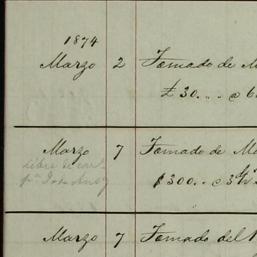 1874
Marzo 2 Tomado de M
£ 30... @ 6
Marzo 7 Tomado de Mo
Libro de
$ 300... @ 3
Marzo 7 Tomado del